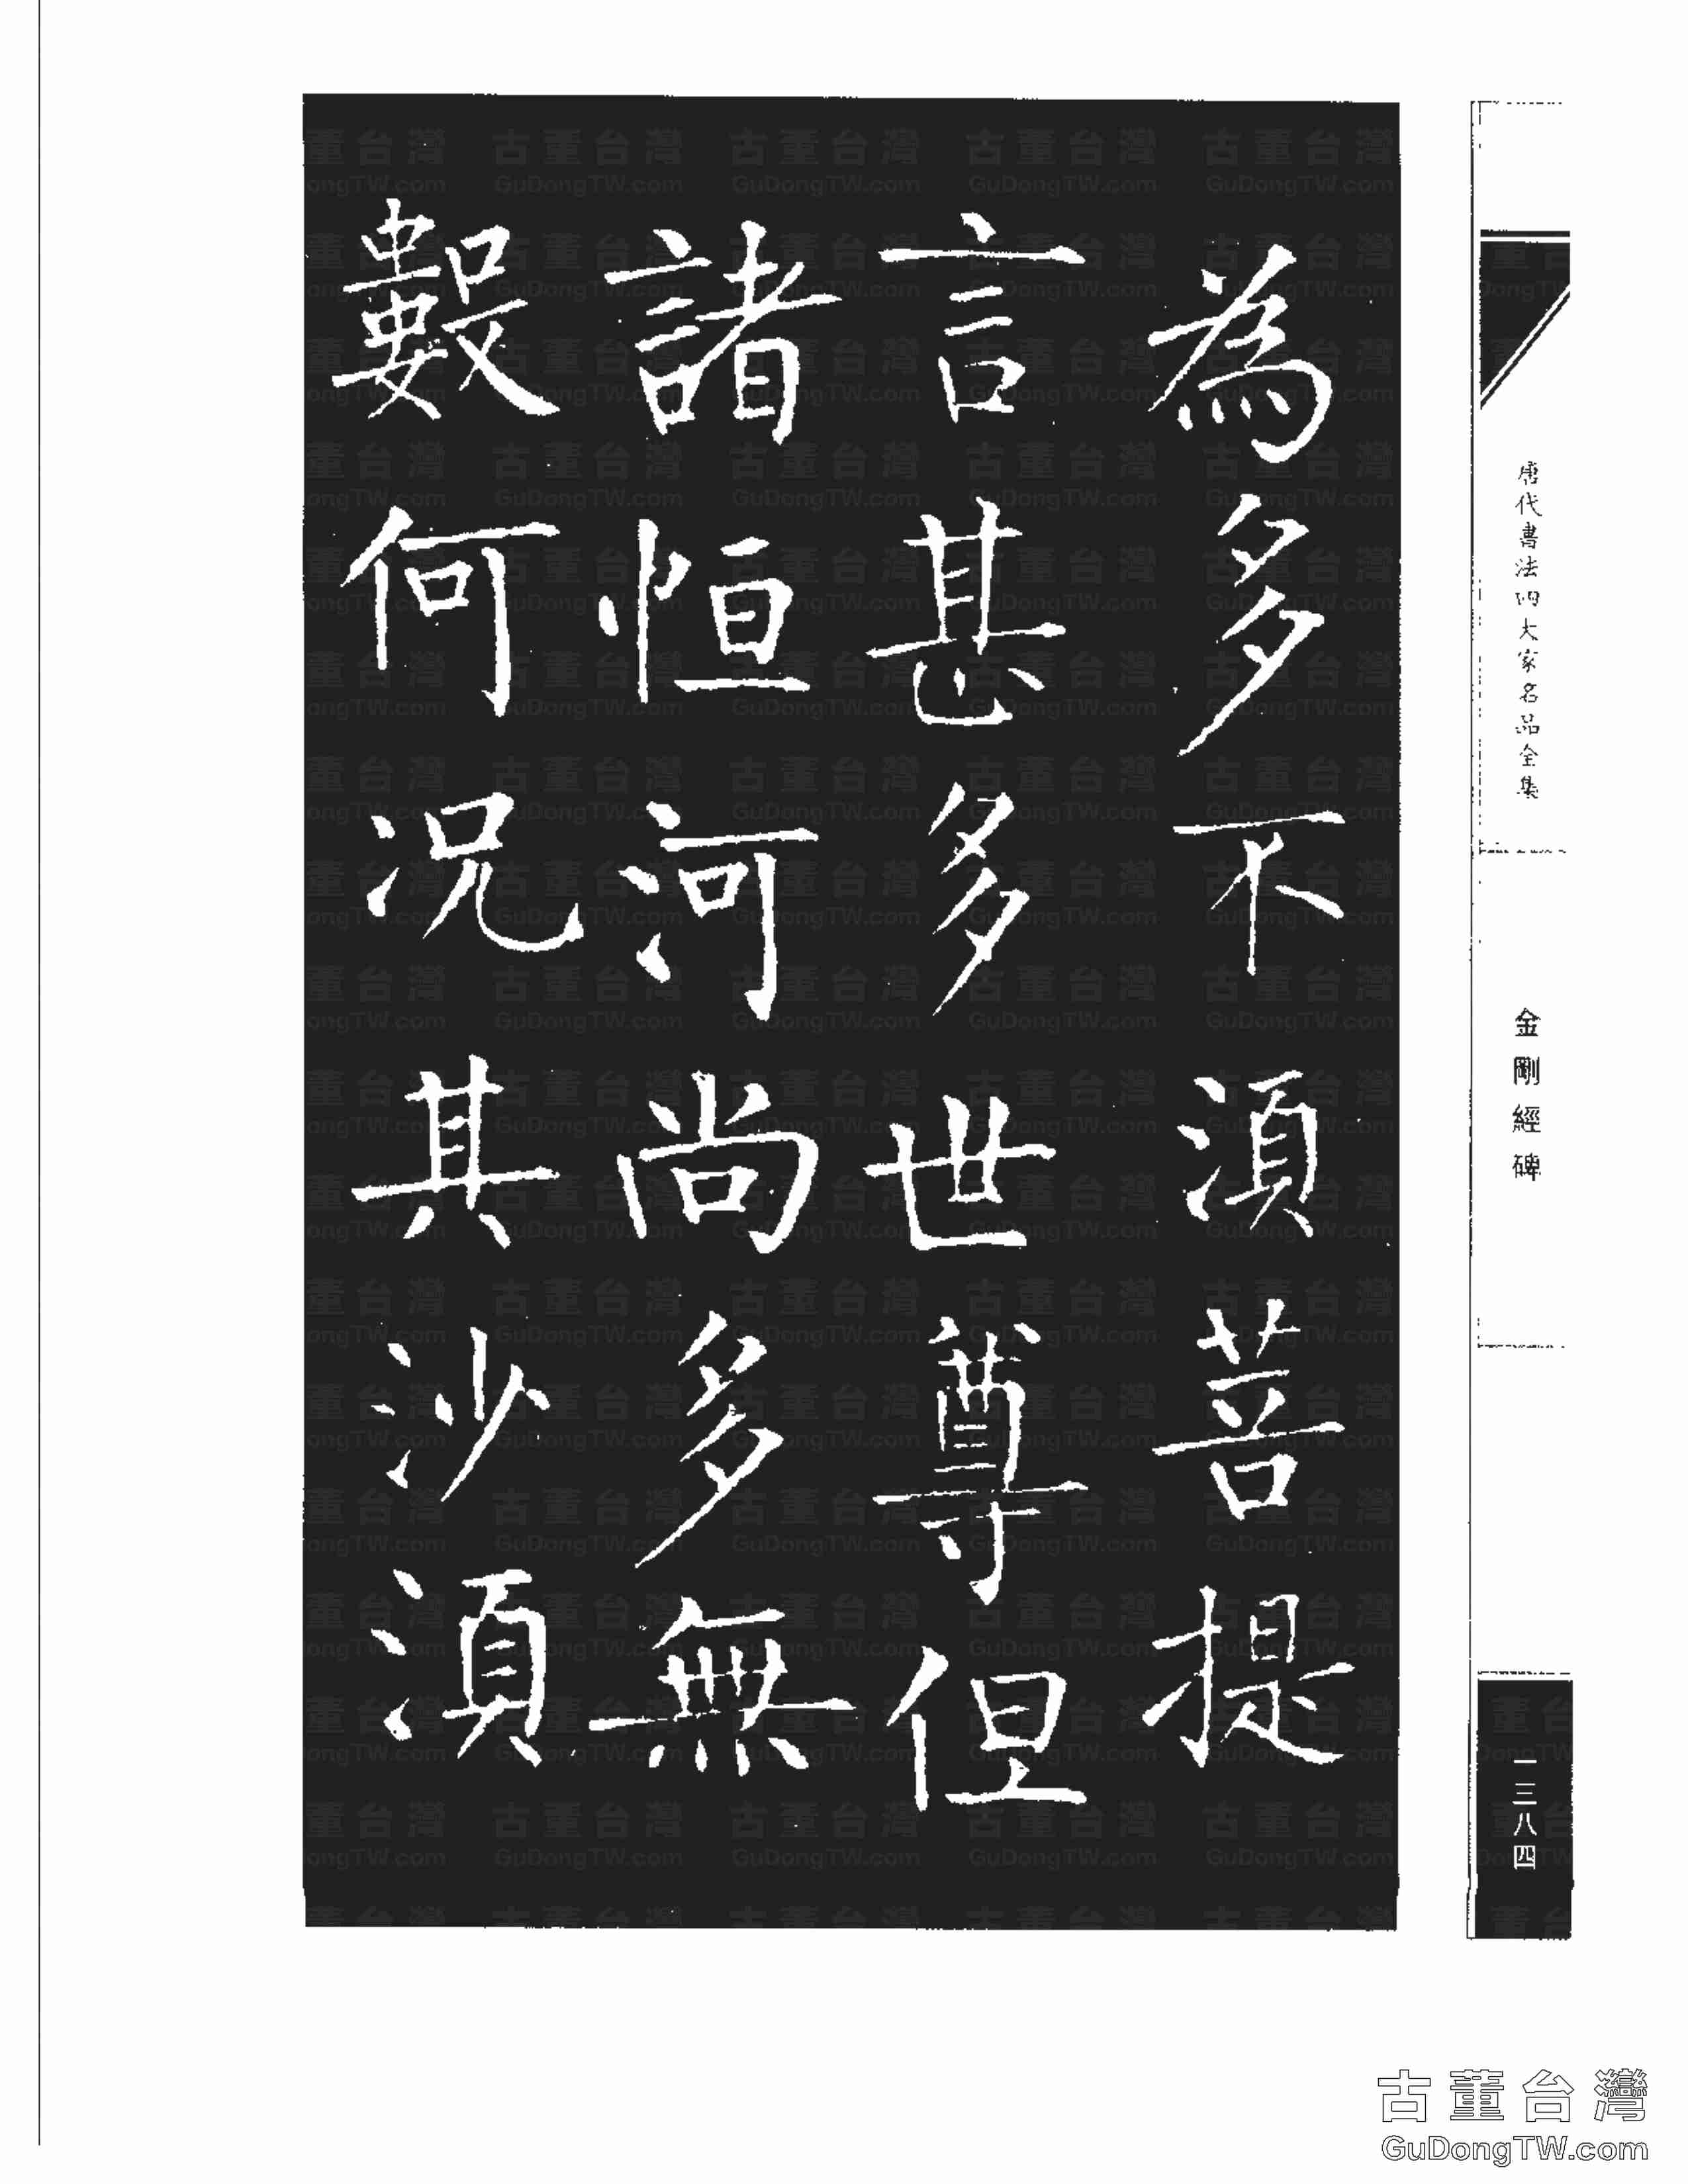 為多不湏菩提
言甚多世尊但
諸恒河尚多無
數何況其沙湏
唐代書法四大家名品全集
金剛經碑
一三八四
古董台灣
GuDongTW.com